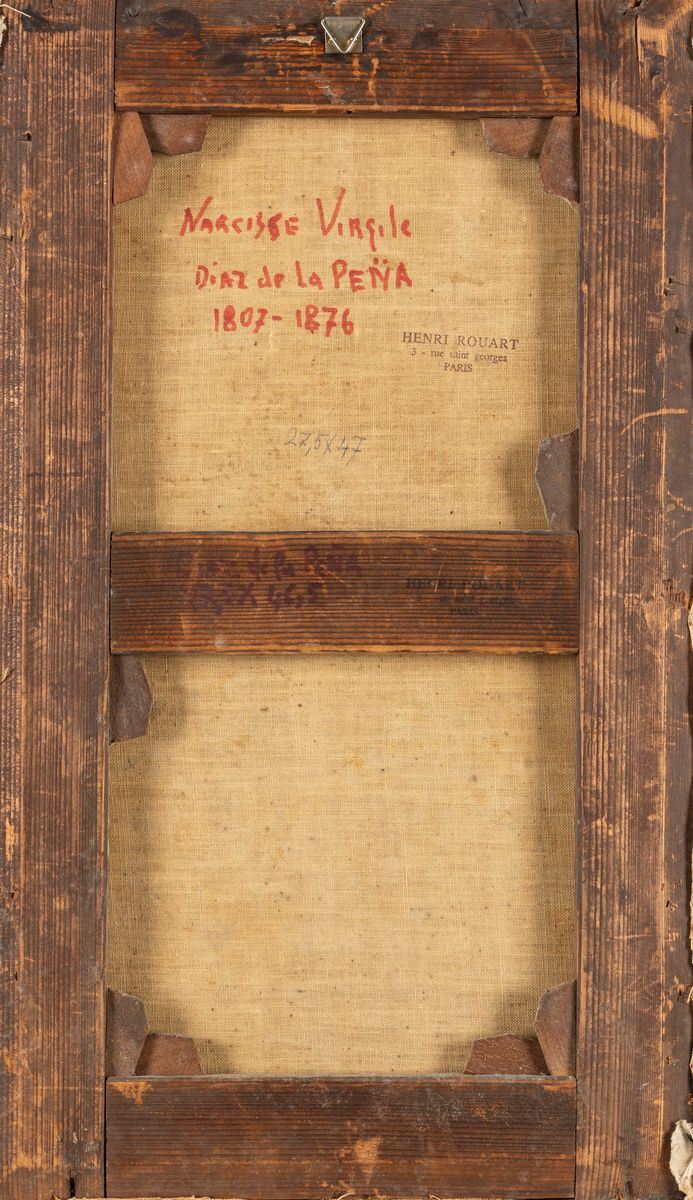 Narcisse Virgile
Diaz de la Peña
1807-1876
HENRI ROUART
3 - rue saint georges
PARIS
27,5 X 47
Diaz de la Peña
HENRI ROUART
PARIS